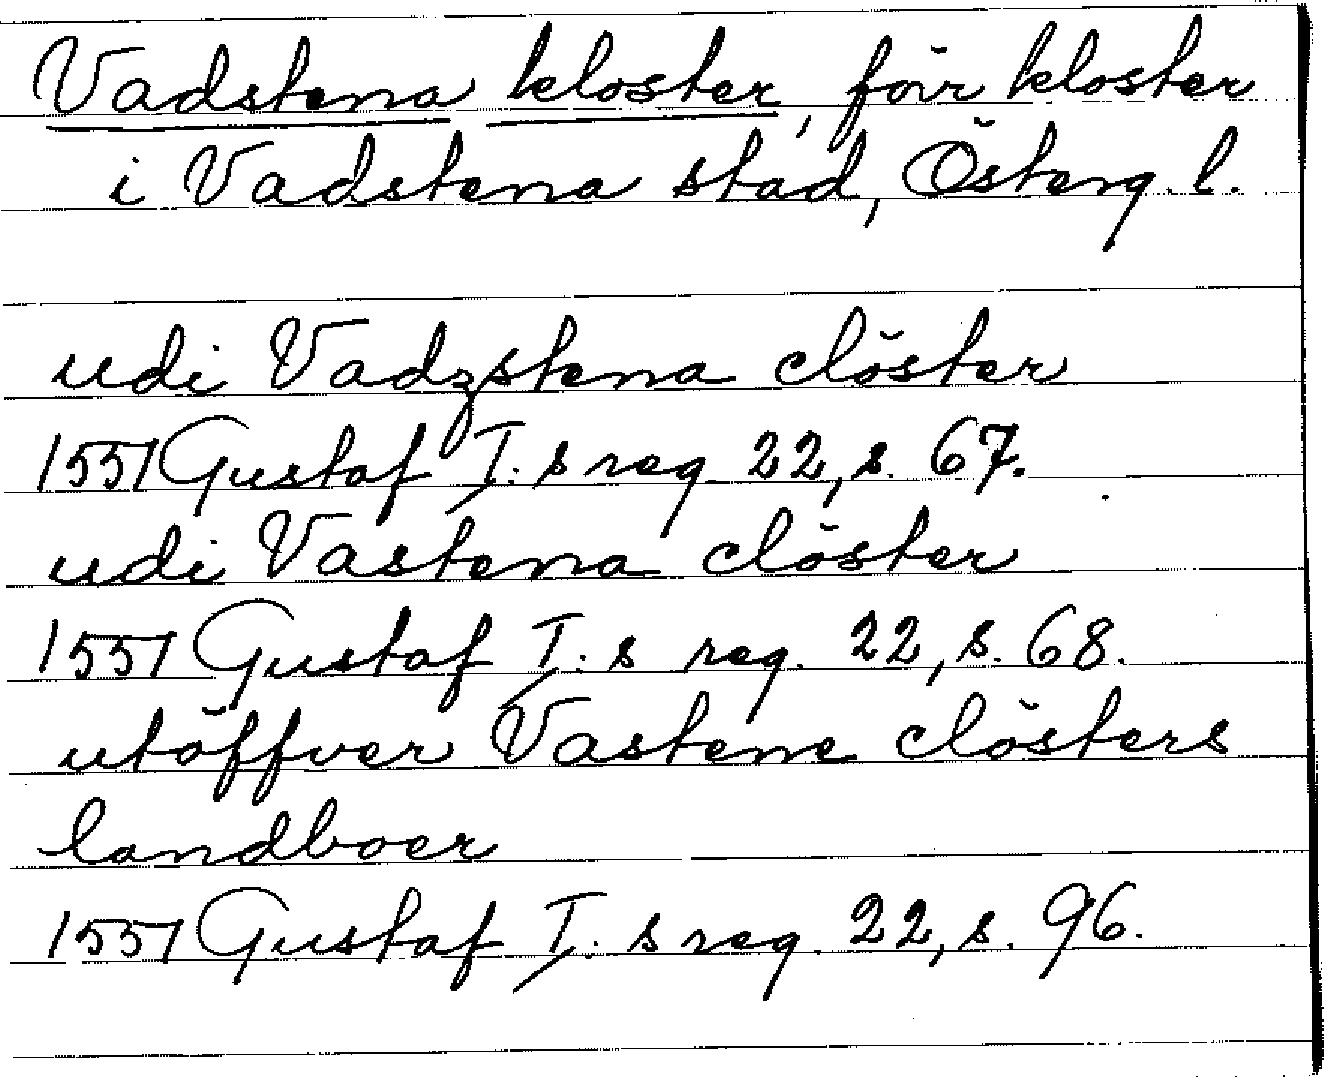 Vadstena kloster, förr kloster
i Vadstena stad, Österg. l.
udi Vadzstena clöster
1551 Gustaf I:s reg. 22, s. 67.
udi Vastena clöster
1551 Gustaf I:s reg. 22, s. 68.
utöffver Vastene clösters
landboer
1551 Gustaf I:s reg. 22, s. 96.